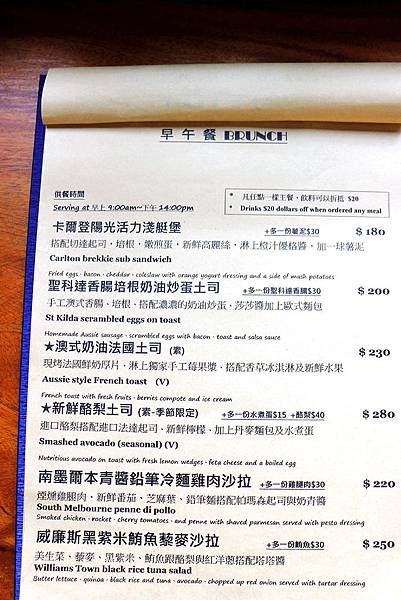 早午餐 BRUNCH
供餐時間
Serving at 早上 9:00am~下午 14:00pm
* 凡任點一樣主餐，飲料可以折抵 $20
* Drinks $20 dollars off when ordered any meal
卡爾登陽光活力淺艇堡 +多一份薯泥$30 $ 180
搭配切達起司，培根，嫩煎蛋，新鮮高麗絲，淋上橙汁優格醬，加一球薯泥
Carlton brekkie sub sandwich
Fried eggs · bacon · cheddar · coleslaw with orange yogurt dressing and a side of mash potatoes
聖科達香腸培根奶油炒蛋土司 +多一份聖科達香腸$30 $ 200
手工澳式香腸、培根、搭配濃濃的奶油炒蛋、莎莎醬加上歐式麵包
St Kilda scrambled eggs on toast
Homemade Aussie sausage · scrambled eggs with bacon · toast and salsa sauce
★澳式奶油法國土司 (素) $ 230
現烤法國鮮奶厚片、淋上獨家手工莓果漿、搭配香草冰淇淋及新鮮水果
Aussie style French toast (V)
French toast with fresh fruits · berries compote and ice cream
★新鮮酪梨土司 (素-季節限定) +多一份水煮蛋$15 +酪梨$40 $ 280
進口酪梨搭配進口法達起司、新鮮檸檬、加上丹麥麵包及水煮蛋
Smashed avocado (seasonal) (V)
Nutritious avocado on toast with fresh lemon wedges · feta cheese and a boiled egg
南墨爾本青醬鉛筆冷麵雞肉沙拉 +多一份雞腿肉$30 $ 220
煙燻雞腿肉、新鮮番茄、芝麻葉、鉛筆麵搭配帕瑪森起司與奶青醬
South Melbourne penne di pollo
Smoked chicken · rocket · cherry tomatoes · and penne with shaved parmesan served with pesto dressing
威廉斯黑紫米鮪魚藜麥沙拉 +多一份鮪魚$30 $ 250
美生菜、藜麥、黑紫米、鮪魚跟酪梨與紅洋蔥搭配塔塔醬
Williams Town black rice tuna salad
Butter lettuce · quinoa · black rice and tuna · avocado · chopped up red onion served with tartar dressing